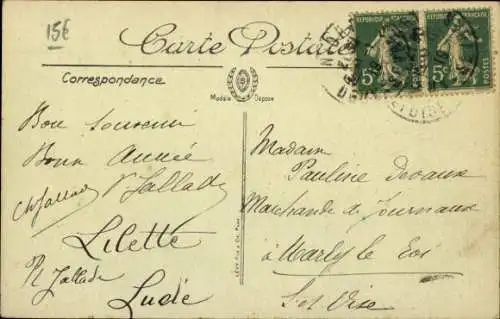 15€
Carte Postale
Correspondance
Modèle Déposé
RÉPUBLIQUE FRANÇAISE
5c POSTES
5c POSTES
Bon Souvenir
Bonne Année
Ch Jallade V Jallade
Lilette
R Jallade
Lucie
Madame
Pauline Devaux
Marchande de Journaux
à Marly le Roi
S. et Oise